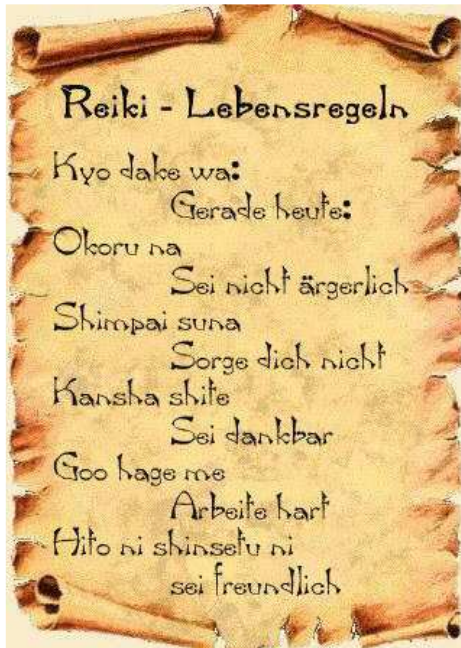 Reiki - Lebensregeln
Kyo dake wa:
Gerade heute:
Okoru na
Sei nicht ärgerlich
Shimpai suna
Sorge dich nicht
Kansha shite
Sei dankbar
Goo hage me
Arbeite hart
Hito ni shinsetu ni
sei freundlich